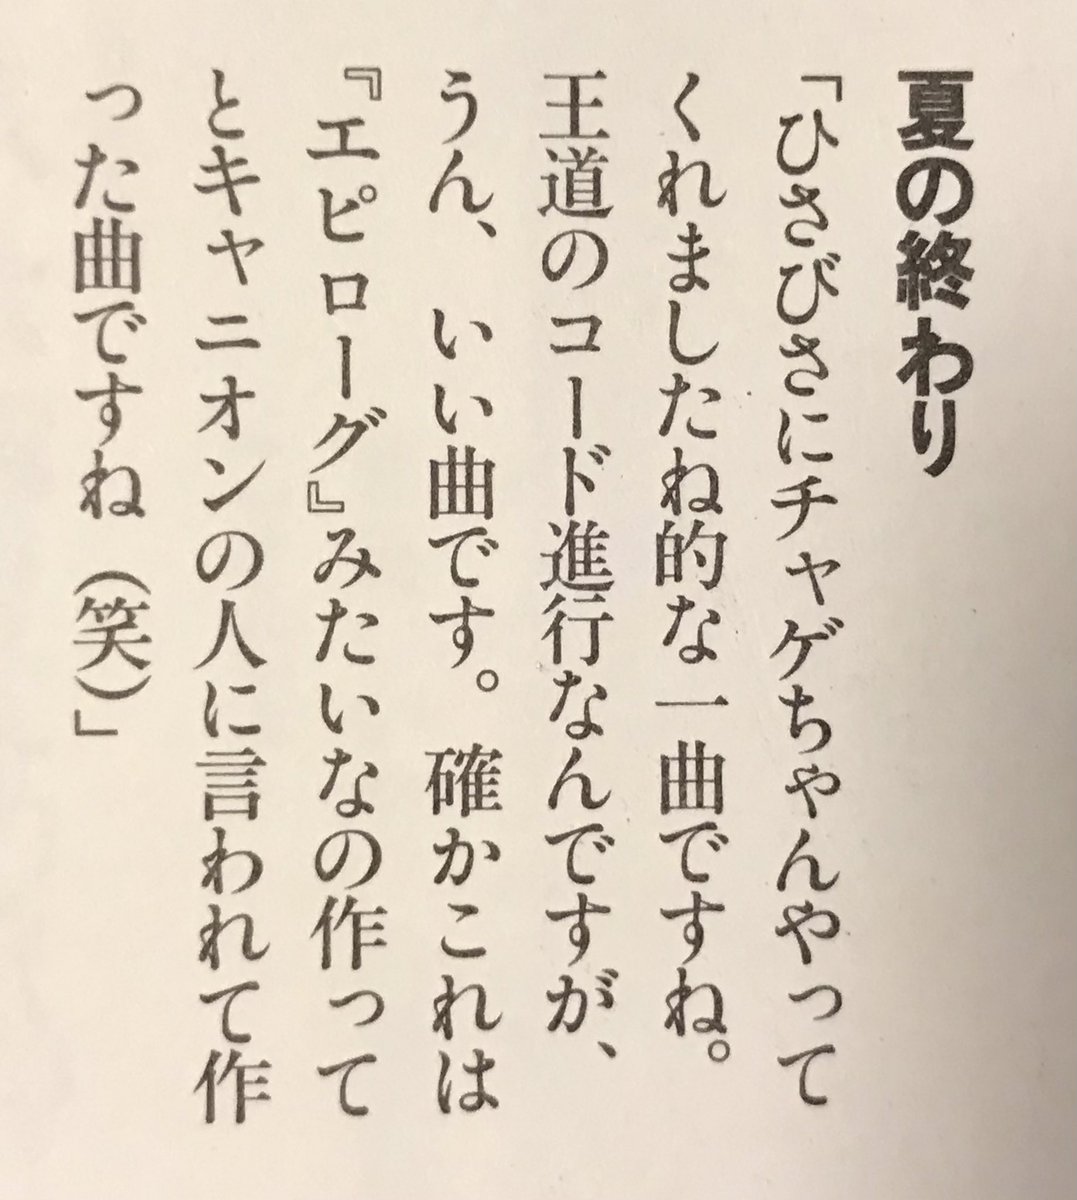 夏の終わり
「ひさびさにチャゲちゃんやって
くれましたね的な一曲ですね。
王道のコード進行なんですが、
うん、いい曲です。確かこれは
『エピローグ』みたいなの作って
とキャニオンの人に言われて作
った曲ですね（笑）」